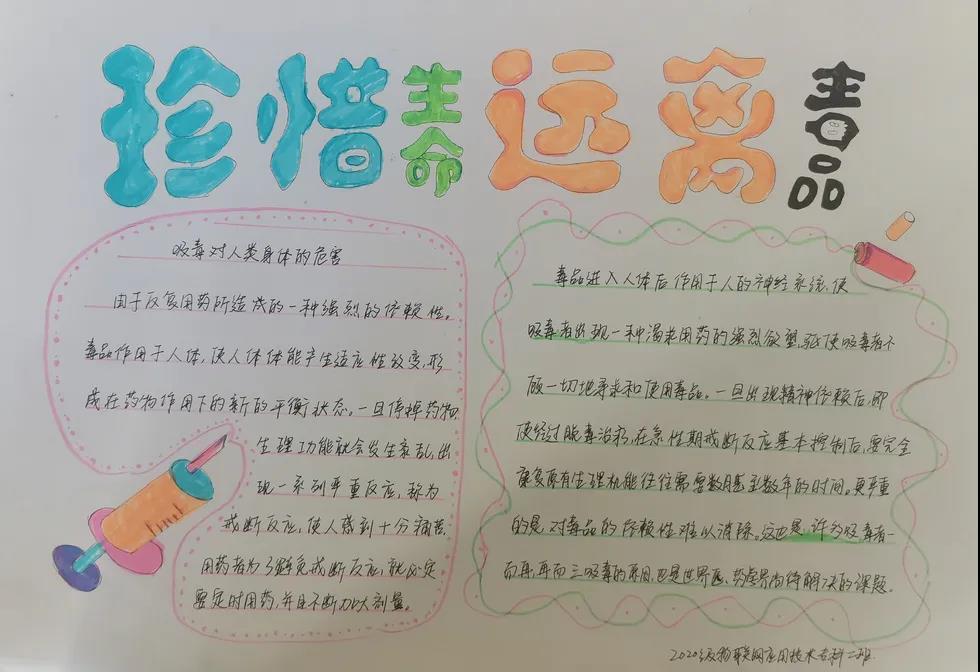 珍惜生命远离毒品
吸毒对人类身体的危害
由于反复用药所造成的一种强烈的依赖性。
毒品作用于人体，使人体体能产生适应性改变，形
成在药物作用下的新的平衡状态。一旦停掉药物，
生理功能就会发生紊乱，出
现一系列严重反应，称为
戒断反应，使人感到十分痛苦。
用药者为了避免戒断反应，就必定
要定时用药，并且不断加大剂量。
毒品进入人体后作用于人的神经系统，使
吸毒者出现一种渴求用药的强烈欲望，驱使吸毒者不
顾一切地寻求和使用毒品。一旦出现精神依赖后，即
使经过脱毒治疗，在急性期戒断反应基本控制后，要完全
康复原有生理机能往往需要数月甚至数年的时间。更严重
的是，对毒品的依赖性难以消除。这也是许多吸毒者一
而再，再而三吸毒的原因，也是世界医、药学界尚待解决的课题。
2020级物联网应用技术专科二班